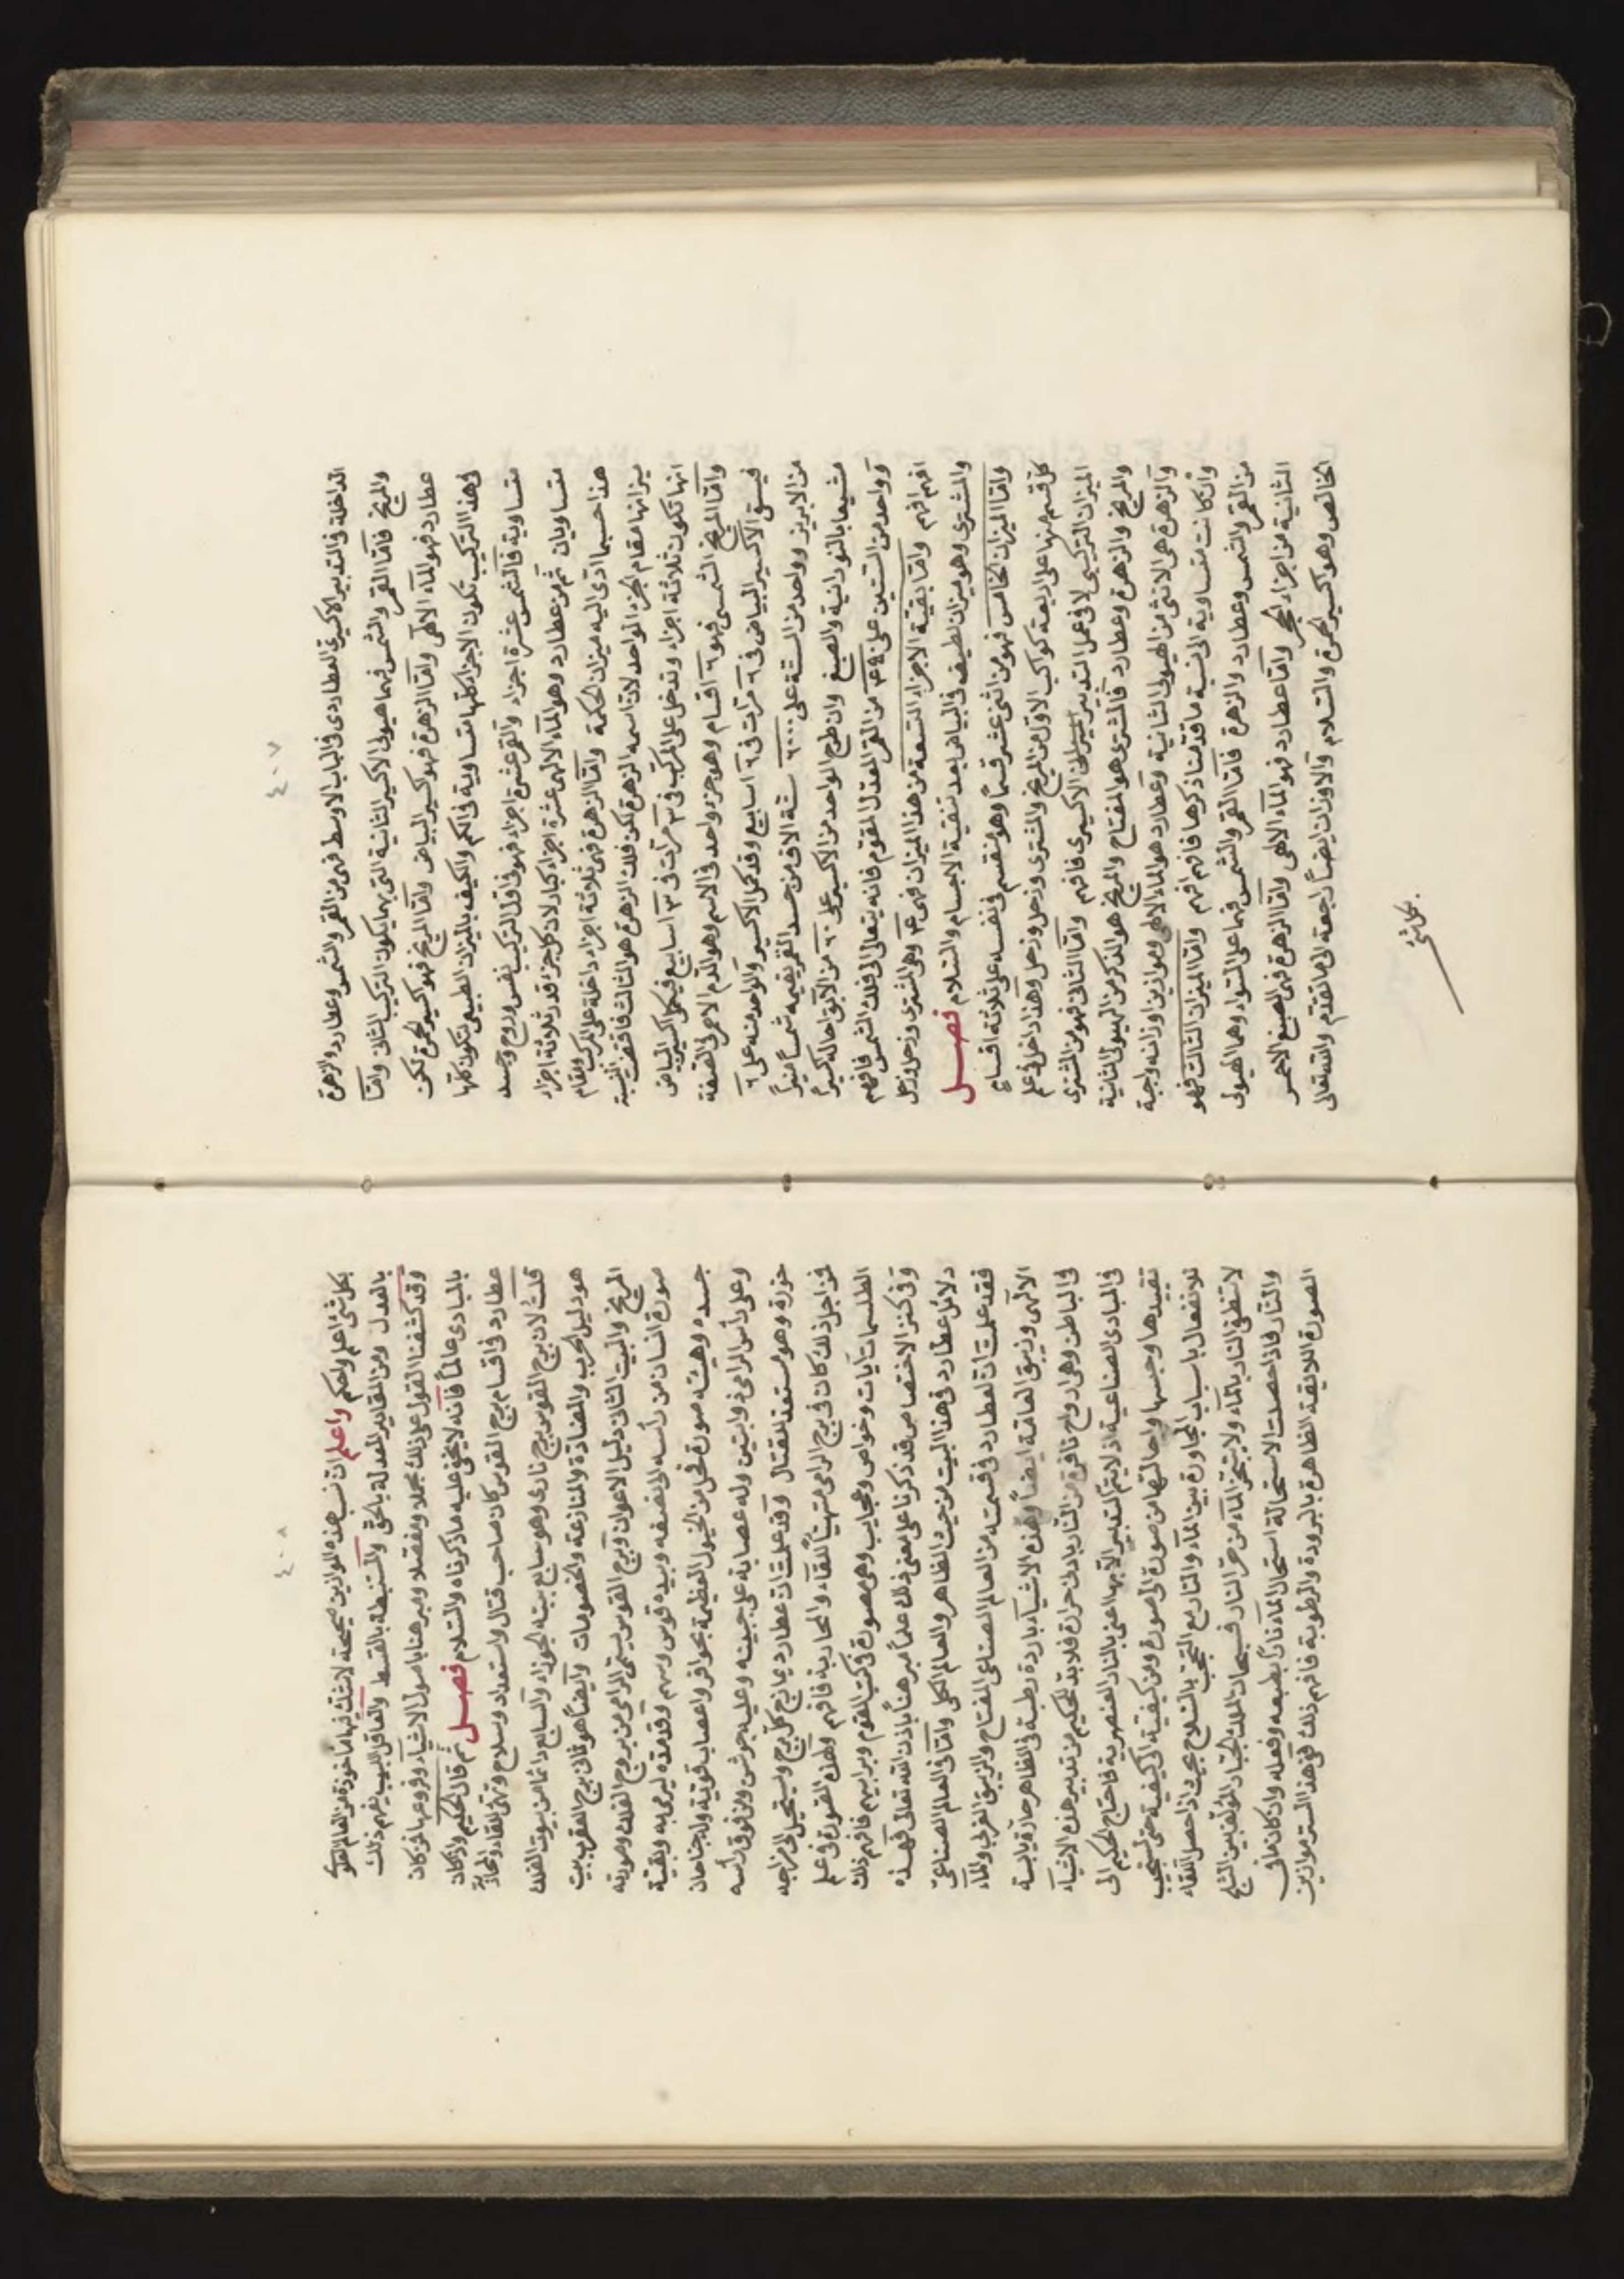 ٤٠٧
الداخلة فالتدبير الاكسيرى العطاردى فى الباب الاوسط فهى من القمر والشمس وعطارد والزهرة
والمريخ فامّا القمر والشمس فهما هيولى الاكسير الثانية التى بها يكون التركيب الثانى وامّا
عطارد فهو الماء الالهى وامّا الزهرة فهو اكسير البياض وامّا المريخ فهو اكسير الحمرة لكن
فى هذا التركيب تكون الاجزاء كلها متساوية فى الكم والكيف بالميزان الطبيعى تكون كلها
متساوية فالشمس عشرة اجزاء والقمر عشرة اجزاء فهو فى اول التركيب نفس وروح وجسد
متساويان ثم من عطارد وهو الماء الالهى عشرة اجزاء كبار لان كل جزء قدر ثلاثة اجزاء
هذا حسبما ادّى اليه ميزان الحكمة وامّا الزهرة فهى ثلاثة اجزاء داخلة على المركب والقائم
ميزانها مقام الجزء الواحد لان اسمه الزهرة لكن فلك الزهرة هو الثالث فاقتضت النسبة
انها تكون ثلاثة اجزاء وتدخل على المركب فى ٣ مرّات فى ٣ اسابيع فيكمل اكسير البياض
وامّا المريخ الشمسى فهو ٦ اقسام وهو جزء واحد فى الاسم وهو الدّم الاحمر فى الصفة
فيسقى الاكسير البياض فى ٦ مرّات فى ٦ اسابيع وقد كمل الاكسير والواحد منه على ٦
من الابريز وواحد من الستة على ٦٠٠٠ ستة الاف من جسد القمر يقيمه شمساً منيراً
مشبعا بالنورانية والصبغ وان طرح الواحد من الاكسير على ٦٠ من الآبق احاله اكسيراً
وواحد من الستين على من القمر المعدل المقوم فانه يتعالى الى فلك الشمس فافهم
افهم افهم وامّا بقية الاجزاء التسعة من هذا الميزان فهى وهى المشترى وزحل وزحل
والمشترى وهو ميزان لطيف فى البياض بعد تنقية الاجسام والسّلام فصـــل
وامّا الميزان الخامس فهو من اثنى عشر قسماً وهو منقسم فى نفسه على ثلاثة اقسام
كل قسم منها على اربعة كواكب الاوّل من المريخ والمشترى وزحل وزحل وهذا داخل فى علم
الميزان التركيبى لا فى عمل التدبير الاكسيرى فافهم وامّا الثانى فهو من المشترى
والمريخ والزهرة وعطارد فالمشترى هو المفتاح والمريخ هو الذكر من الهيولى الثانية
والزهرة هى الانثى من الهيولى الثانية وعطارد هو الماء الالهى وموازين اوزانه واجبة
وان كانت متساوية الى نسبة ما قدّمنا ذكرها فافهم افهم وامّا الميزان الثالث فهو
من القمر والشمس وعطارد والزهرة فامّا القمر والشمس فهما على السّواء وهما الهيولى
الثانية من اجزاء الحجر وامّا عطارد فهو الماء الالهى وامّا الزهرة فهى الصبغ الاحمر
الخالص وهو اكسير الحمرة والسّلام والاوزان ايضاً راجعة الى ما تقدّم والله تعالى
بكل شئ
٤٠٨
بكل شئ اعلم واحكم واعلم ان نسب هذه الموازين صحيحة لا شك فيها مأخوذة من العالم العلوى
بالعدل ومن المقادير المعدلة بالحق والمستنبطة بالقسط والعاقل اللبيب يفهم ذلك
وقد كشفنا القول على ذلك مجملا ومفصّلا ومبرهنا باصول الاشياء وفروعها فمن كان
بالمبادى عالماً فانه لا يخفى عليه ما ذكرناه والسّلام فصـــل ثم قال الحكيم واذا كان
عطارد فى اقسام برج القوس كان صاحب قتال واستعداد وسلاح وتهئ للقاء والمحاربة
قلت لان برج القوس برج نارى وهو سابع بيته الجوزاء والسابع دائما من بيوت الفلك
هو دليل الحرب والمضادة والمنازعة والخصومات وايضاً هو ثانى برج العقرب بيت
المريخ والبيت الثانى دليل الاعوان وبرج القوس يسمّى الرامى من بروج الفلك وصورته
صورة انسان من رأسه الى نصفه وبيده قوس وسهم وقد مدّه ليرمى به وبقية
جسده وهيئته صورة فحل من الخيول العظيمة بحوافر واعصاب قوية وله جناحان
وعلى رأس الرامى ذوابتين وله عصابة على جبينه وعليه جوشن ومن فوق رأسه
خوزة وهو مستعد للقتال وقد علمت ان عطارد يمازج كل برج ويستحيل الى مزاجه
فمن اجل ذلك كان فى برج الرامى متهيئاً للقاء والمحاربة فافهم ولهذه الصورة فى علم
الطلسمات آيات وخواص وعجايب وهى مصورة فى كتب القوم وبرابيهم فافهم ذلك
وفى كنز الاختصاص قد ذكرنا على معنى ذلك علماً مبرهناً باذن الله تعالى فهذه
دلائل عطارد فى هذا البيت من حيث الظاهر والعالم الكلى وامّا فى العالم الصناعى
فقد علمت ان لعطارد فى قسمته من العالم الصناعى المفتاح والزيبق الغربى والماء
الالهى وزيبق العامة ايضاً وهذه الاشياء باردة رطبة فى الظاهر حارّة يابسة
فى الباطن وهى ارواح نافرة من النار بادنى حرارة فلا بد للحكيم من تدبير هذه الاشياء
فى المبادى الصناعية اذ لا يتم التدبير الا بها اعنى بالنار العنصرية فاحتاج الحكيم الى
تقييدها وحبسها واحالتها من صورة الى صورة ومن كيفية الى كيفية حتى تستجيب
للانفعال باسباب المجاورة بين الماء والنار مع التحجب بالسّلاح بحيث اذا حصل اللقاء
لا تنطفى النار بالماء ولا يتبخر الماء من حر النار فسبحان الملك الجبّار المؤلف بين الثلج
والنّار فاذا حصلت الاستحالة استحال الماء ناراً بطبعه وفعله وان كان ماء فى
الصورة اللايقة الظاهرة بالبرودة والرطوبة فافهم ذلك ففى هذا السّر موازين